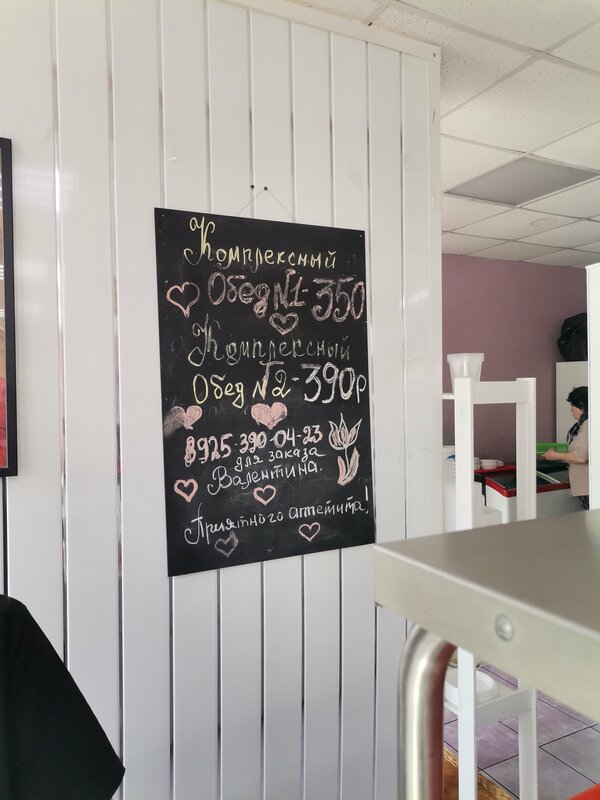 Комплексный
Обед №1-350
Комплексный
Обед №2-390р
8925-390-04-23
для заказа
Валентина.
Приятного аппетита!